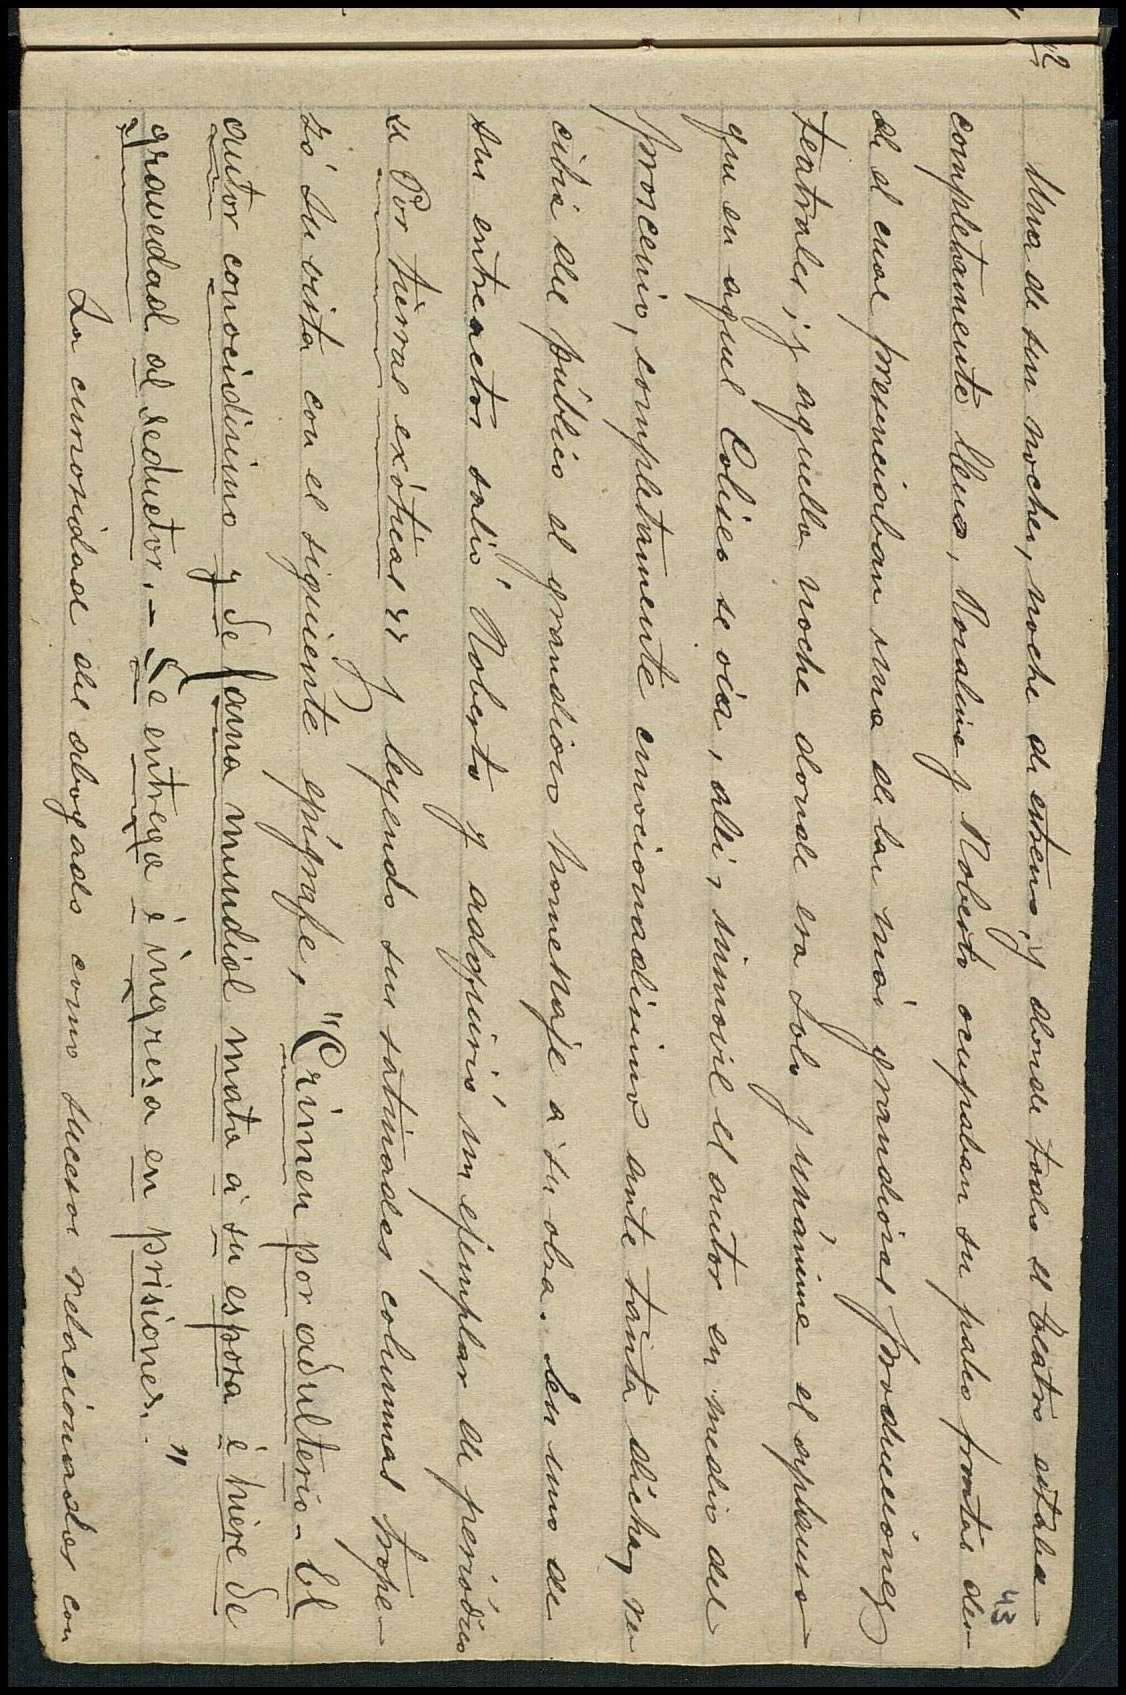 42
43
Una de sus noches, noche de estreno, y donde todo el teatro estaba
completamente lleno, Rosalina y Roberto ocupaban su palco frontal des-
de el cual presenciaban una de las más grandiosas producciones
teatrales, y aquella noche donde era solo y unánime el aplauso
que en aquel Coliseo se oía, allí, inmovil el autor en medio del
proscenio, completamente emocionadisimo ante tanta dicha, re-
cibia del público el grandioso homenaje a su obra. En uno de
sus entreactos salió Roberto y adquirió un ejemplar de periódico
"Por tierras exóticas" y leyendo sus satinadas columnas trope-
zó su vista con el siguiente epígrafe, "Crimen por adulterio - El
autor conocidisimo y de fama mundial mata á su esposa é hiere de
gravedad al seductor. - Se entrega é ingresa en prisiones."
La curiosidad del abogado como sucesos relacionados con